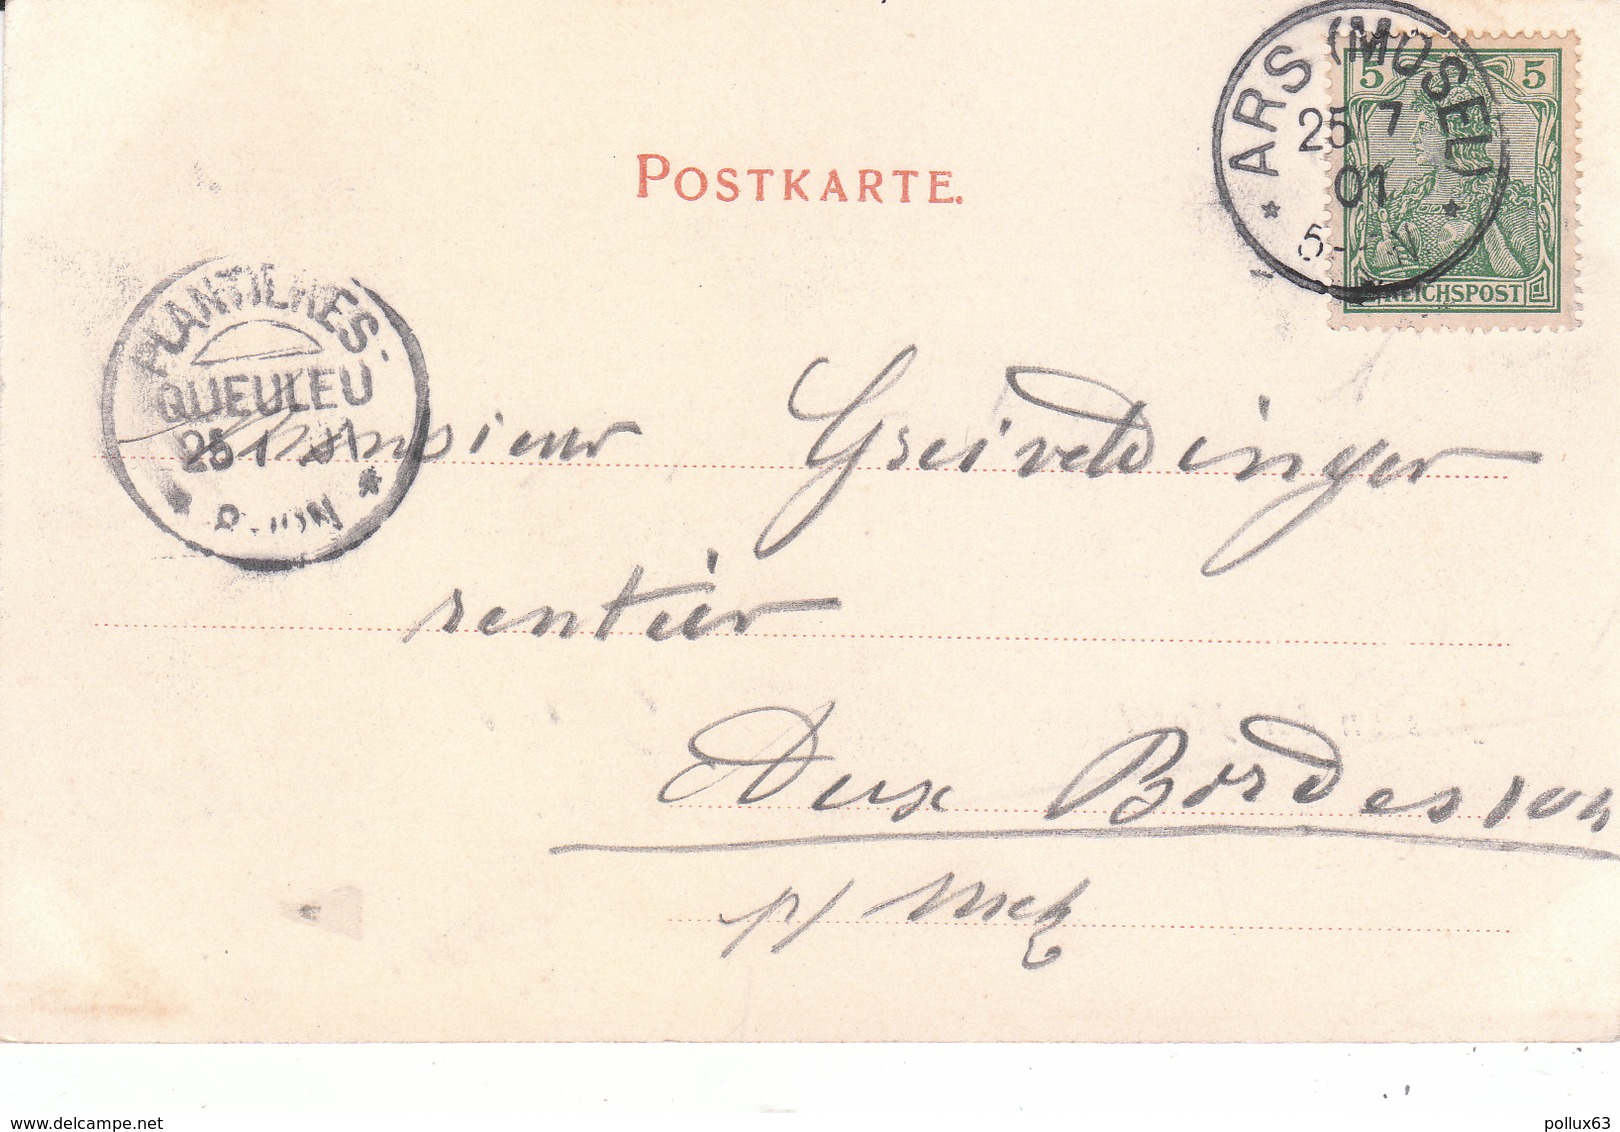 POSTKARTE.
ARS (MOSEL)
25 7
01
5 5
REICHSPOST
PLANTIÈRES-
QUEULEU
25
Monsieur Greiveldinger
rentier
Aux Bordes
p/ Metz
www.delcampe.net
pollux63